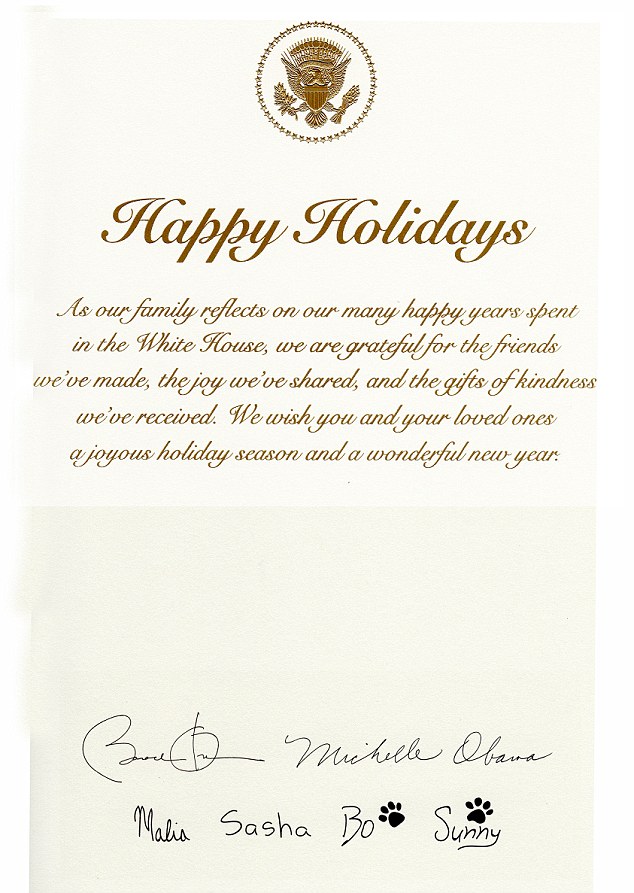 Happy Holidays
As our family reflects on our many happy years spent
in the White House, we are grateful for the friends
we've made, the joy we've shared, and the gifts of kindness
we've received. We wish you and your loved ones
a joyous holiday season and a wonderful new year.
Barack Obama Michelle Obama
Malia Sasha Bo Sunny